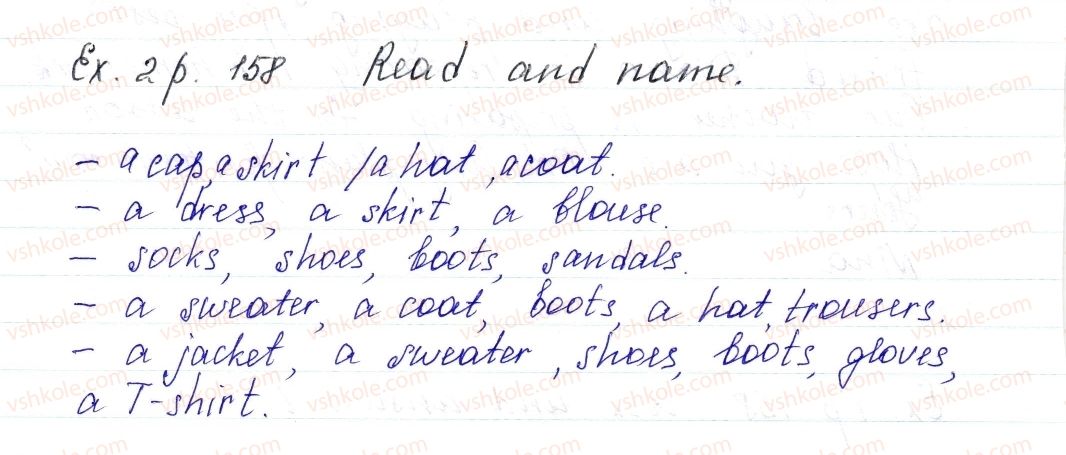 Ex. 2 p. 158 Read and name.
- a cap, a skirt / a hat, a coat.
- a dress, a skirt, a blouse.
- socks, shoes, boots, sandals.
- a sweater, a coat, boots, a hat, trousers.
- a jacket, a sweater, shoes, boots, gloves,
a T-shirt.